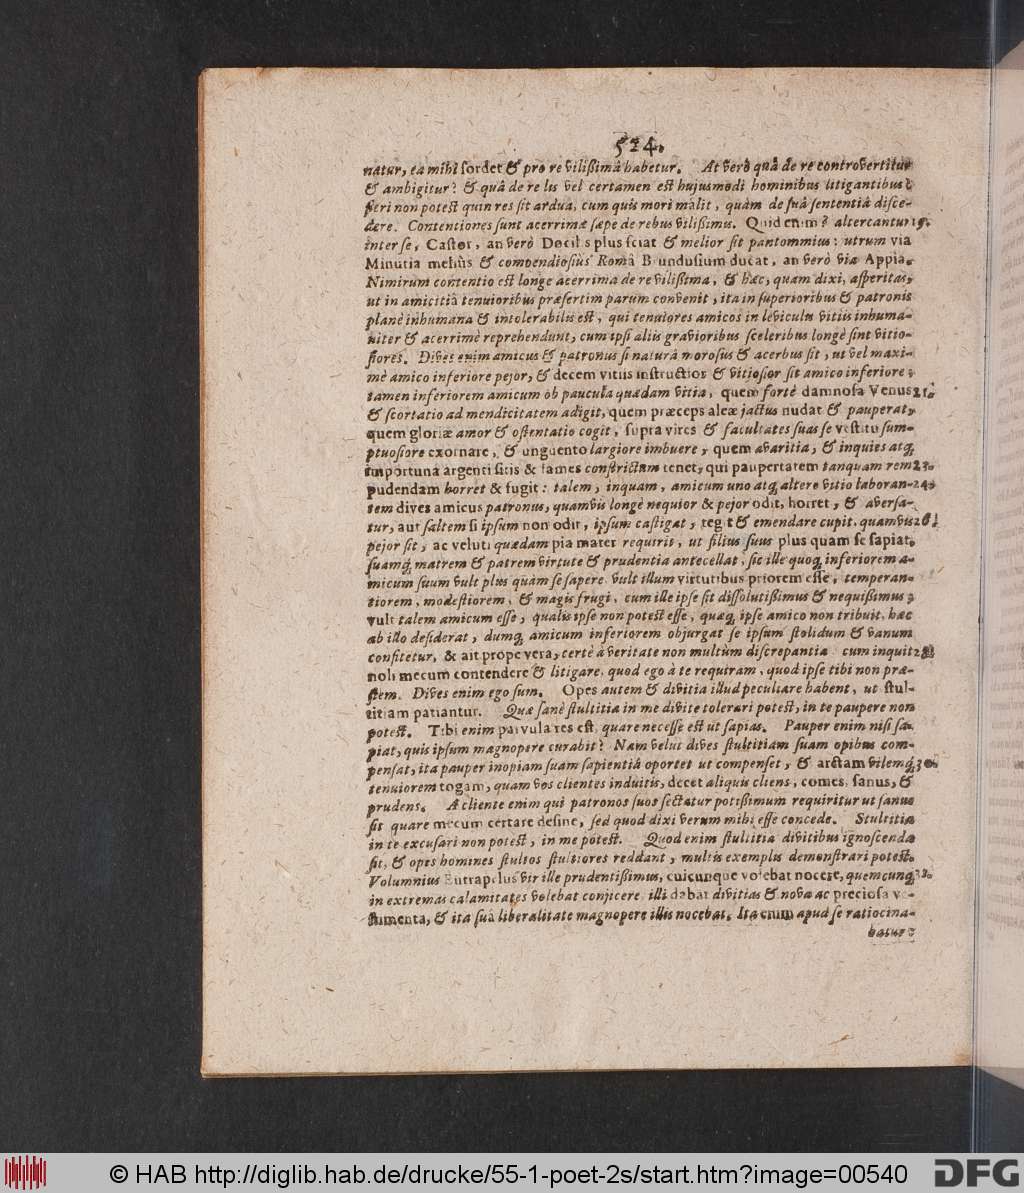 524.
natur, ea mihi sordet & pro re vilißimâ habetur. At verò quâ de re controvertitur
& ambigitur? & quâ de re lis vel certamen est hujusmodi hominibus litigantibus?
feri non potest quin res sit ardua, cum quis mori malit, quàm de suâ sententiâ disce-
dere. Contentiones sunt acerrimæ sæpe de rebus vilißimis. Quid enim? altercantur 19.
inter se, Castor, an verò Docilis plus sciat & melior sit pantomimus: utrum via
Minutia meliùs & compendiosiùs Româ Brundusium ducat, an verò via Appia.
Nimirum contentio est longè acerrima de re vilißima, & hæc, quam dixi, asperitas,
ut in amicitiâ tenuioribus præsertim parum convenit, ita in superioribus & patronis
planè inhumana & intolerabilis est, qui tenuiores amicos in leviculis vitiis inhuma-
niter & acerrimè reprehendunt, cum ipsi aliis gravioribus sceleribus longè sint vitio-
siores. Dives enim amicus & patronus si naturâ morosus & acerbus sit, ut vel maxi-
mè amico inferiore pejor, & decem vitiis instructior & vitiosior sit amico inferiore;
tamen inferiorem amicum ob paucula quædam vitia, quem fortè damnosa Venus 21.
& scortatio ad mendicitatem adigit, quem præceps aleæ jactus nudat & pauperat,
quem gloriæ amor & ostentatio cogit, supra vires & facultates suas se vestitu sum-
ptuosiore exornare, & unguento largiore imbuere, quem avaritia, & inquies atq;
importuna argenti sitis & fames constrictum tenet, qui paupertatem tanquam rem 23.
pudendam horret & fugit: talem, inquam, amicum uno atq; altero vitio laboran- 24.
tem dives amicus patronus, quamvis longè nequior & pejor odit, horret, & aversa-
tur, aut saltem si ipsum non odit, ipsum castigat, regit & emendare cupit, quamvis 26.
pejor sit, ac veluti quædam pia mater requirit, ut filius suus plus quam se sapiat,
suamq; matrem & patrem virtute & prudentia antecellat, sic ille quoq; inferiorem a-
micum suum vult plus quàm se sapere, vult illum virtutibus priorem esse, temperan-
tiorem, modestiorem, & magis frugi, cum ille ipse sit dissolutißimus & nequißimus;
vult talem amicum esse, qualis ipse non potest esse, quæq; ipse amico non tribuit, hæc
ab illo desiderat, dumq; amicum inferiorem objurgat se ipsum stolidum & vanum
confitetur, & ait prope vera, certè à veritate non multùm discrepantia cum inquit 28
noli mecum contendere & litigare, quod ego à te requiram, quod ipse tibi non præ-
stem. Dives enim ego sum. Opes autem & divitia illud peculiare habent, ut stul-
titiam patiantur. Quæ sanè stultitia in me divite tolerari potest, in te paupere non
potest. Tibi enim parvula res est, quare necesse est ut sapias. Pauper enim nisi sa-
piat, quis ipsum magnopere curabit? Nam velut dives stultitiam suam opibus com-
pensat, ita pauper inopiam suam sapientiâ oportet ut compenset, & arctam vilemq; 30.
tenuiorem togam, quam vos clientes induitis, decet aliquis cliens, comes, sanus, &
prudens. A cliente enim qui patronos suos sectatur potißimum requiritur ut sanus
sit quare mecum certare desine, sed quod dixi verum mihi esse concede. Stultitia
in te excusari non potest, in me potest. Quod enim stultitia divitibus ignoscenda
sit, & opes homines stultos stultiores reddant, multis exemplis demonstrari potest.
Volumnius Eutrapelus vir ille prudentißimus, cuicunque volebat nocere, quemcunq; 33.
in extremas calamitates volebat conjicere, illi dabat divitias & nova ac preciosa ve-
stimenta, & ita suâ liberalitate magnopere illis nocebat. Ita enim apud se ratiocina-
batur:
© HAB http://diglib.hab.de/drucke/55-1-poet-2s/start.htm?image=00540
DFG